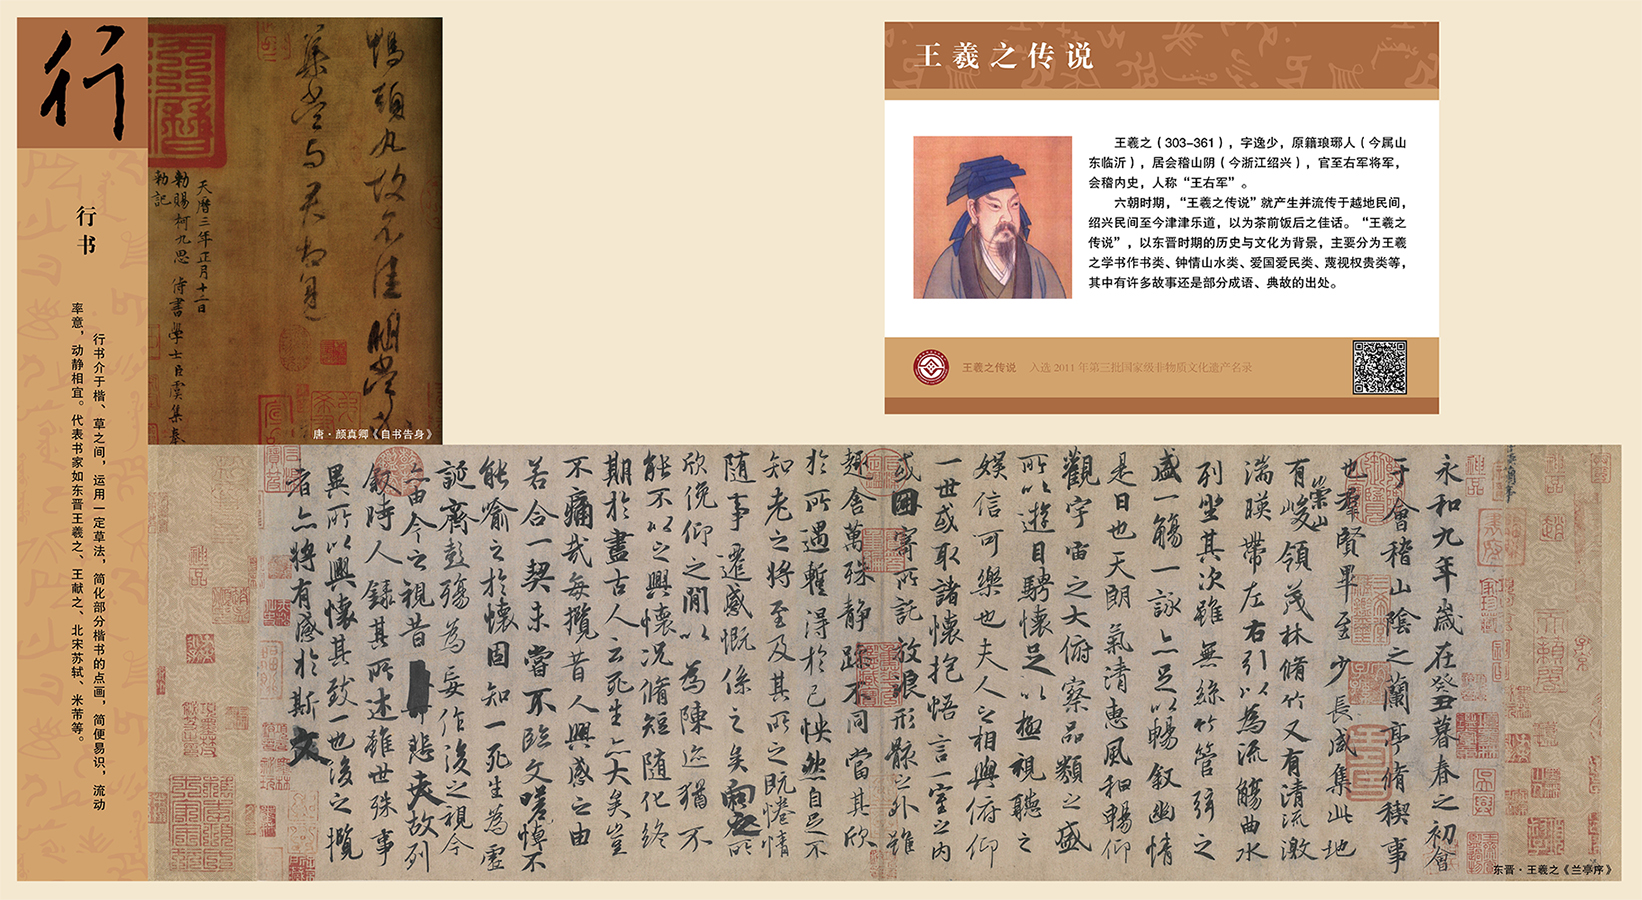 行
行书
行书介于楷、草之间，运用一定草法，简化部分楷书的点画，简便易识，流动
率意，动静相宜。代表书家如东晋王羲之、王献之、北宋苏轼、米芾等。
鴨頭丸故不佳明當必
集當与君相見
天曆三年正月十二日
勑賜柯九思侍書學士臣虞集奉
勑記
唐·颜真卿《自书告身》
王羲之传说
王羲之（303-361），字逸少，原籍琅琊人（今属山
东临沂），居会稽山阴（今浙江绍兴），官至右军将军，
会稽内史，人称“王右军”。
六朝时期，“王羲之传说”就产生并流传于越地民间，
绍兴民间至今津津乐道，以为茶前饭后之佳话。“王羲之
传说”，以东晋时期的历史与文化为背景，主要分为王羲
之学书作书类、钟情山水类、爱国爱民类、蔑视权贵类等，
其中有许多故事还是部分成语、典故的出处。
王羲之传说 入选 2011 年第三批国家级非物质文化遗产名录
永和九年歲在癸丑暮春之初會
于會稽山陰之蘭亭脩稧事
也羣賢畢至少長咸集此地
有崇山峻領茂林脩竹又有清流激
湍暎帶左右引以為流觴曲水
列坐其次雖無絲竹管弦之
盛一觴一詠亦足以暢敘幽情
是日也天朗氣清惠風和暢仰
觀宇宙之大俯察品類之盛
所以遊目騁懷足以極視聽之
娛信可樂也夫人之相與俯仰
一世或取諸懷抱悟言一室之內
或因寄所託放浪形骸之外雖
趣舍萬殊靜躁不同當其欣
於所遇蹔得於己怏然自足不
知老之將至及其所之既惓情
隨事遷感慨係之矣向之所
欣俛仰之閒以為陳迹猶不
能不以之興懷況脩短隨化終
期於盡古人云死生亦大矣豈
不痛哉每攬昔人興感之由
若合一契未嘗不臨文嗟悼不
能喻之於懷固知一死生為虛
誕齊彭殤為妄作後之視今
亦由今之視昔悲夫故列
敘時人錄其所述雖世殊事
異所以興懷其致一也後之攬
者亦將有感於斯文
东晋·王羲之《兰亭序》